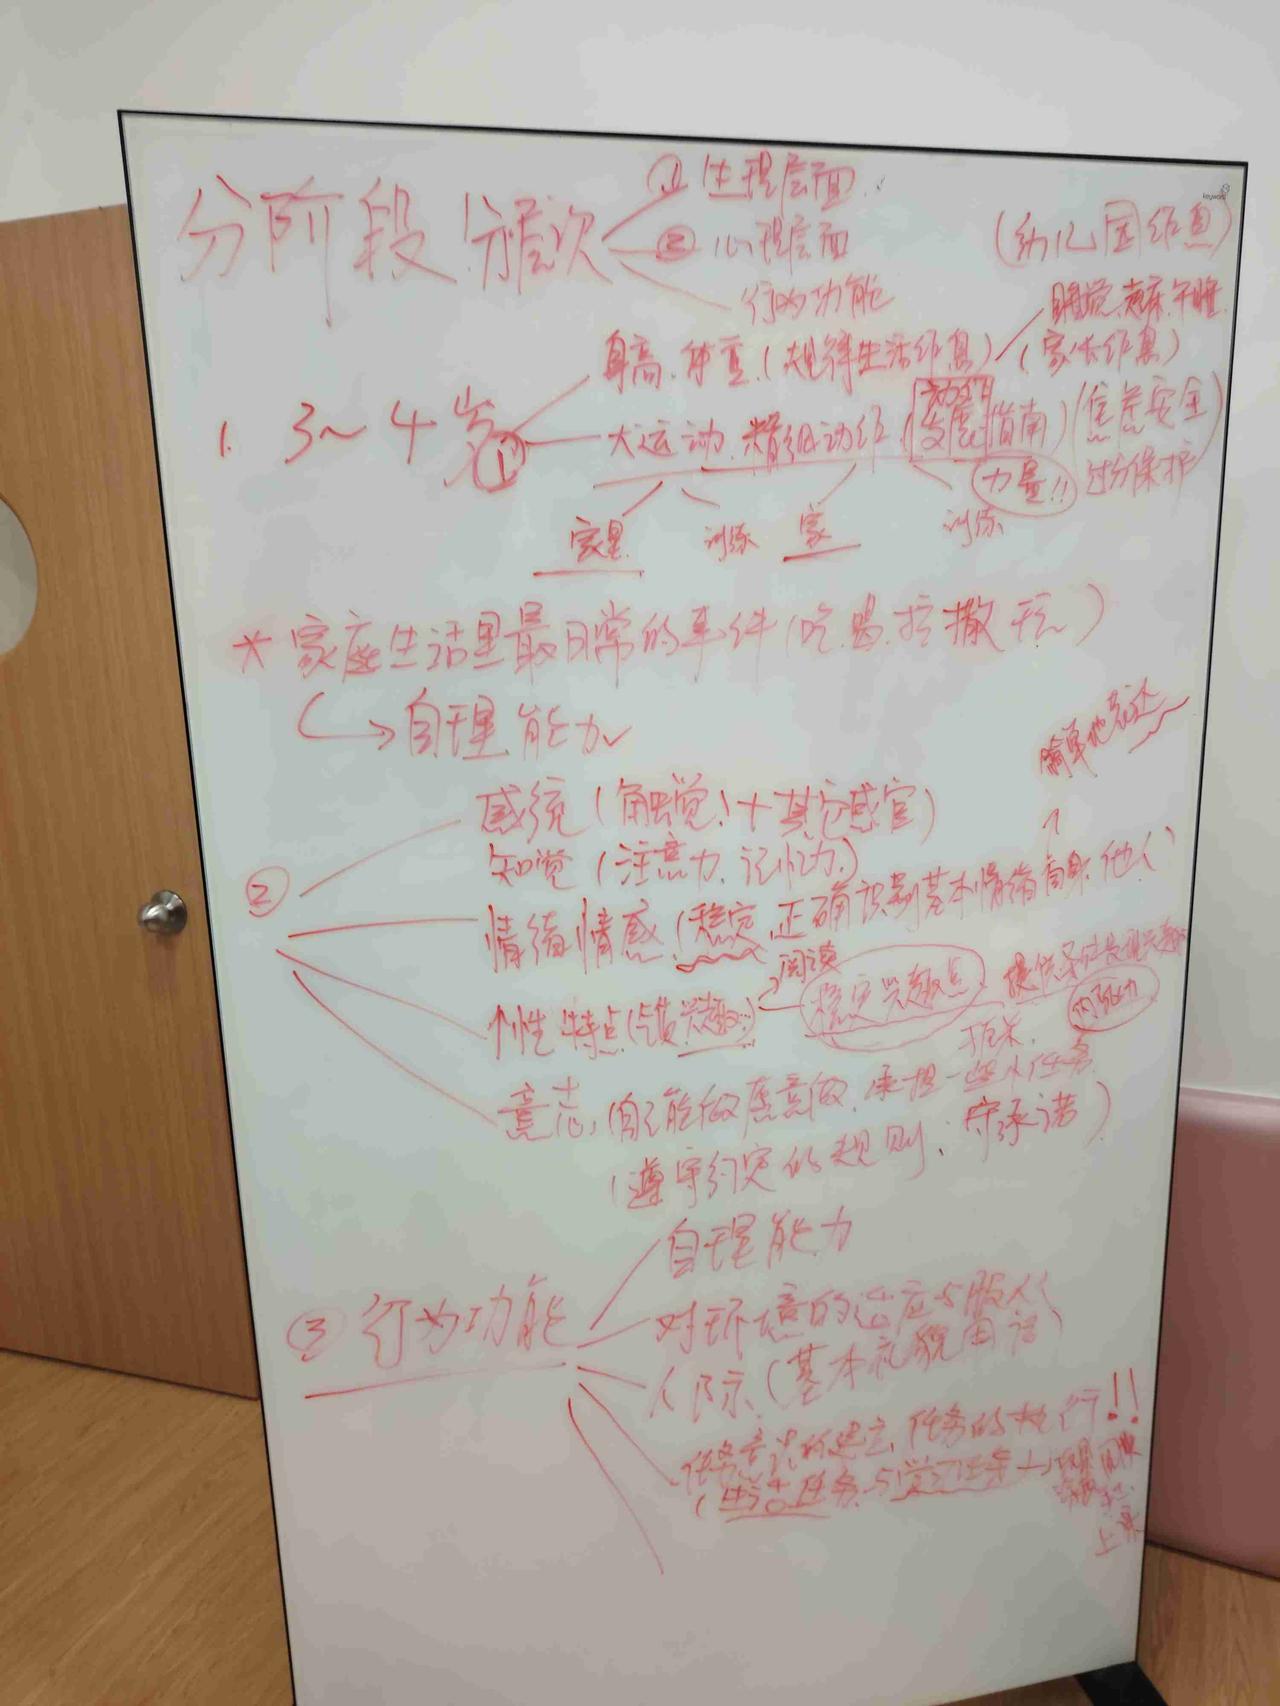 分阶段 分层次
① 生理层面
② 心理层面
行为功能
keyword
(幼儿园作息)
睡觉.起床.午睡
身高.体重.(规律生活作息)
(家长作息)
1. 3~4岁①
大运动.精细动作.(发展指南)
(焦虑安全
过分保护
力量!!
家里. 训练 家 训练
* 家庭生活里最日常的事件(吃.喝.拉.撒
自理能力
简单地表达
②
感统(触觉!+其它感官)
知觉(注意力.记忆力.)
情绪情感.(稳定.正确识别基本情绪自身.他人)
阅读
个性特点(气质.兴趣...)
稳定兴趣点
提供条件发现兴趣
内驱力
意志.(自己能做愿意做.承担一些小任务
(遵守约定的规则.守承诺)
③ 行为功能
自理能力
对环境的适应与服从
人际.(基本礼貌用语)
任务意识的建立.任务的执行!!
(生活任务.与学习任务
上课